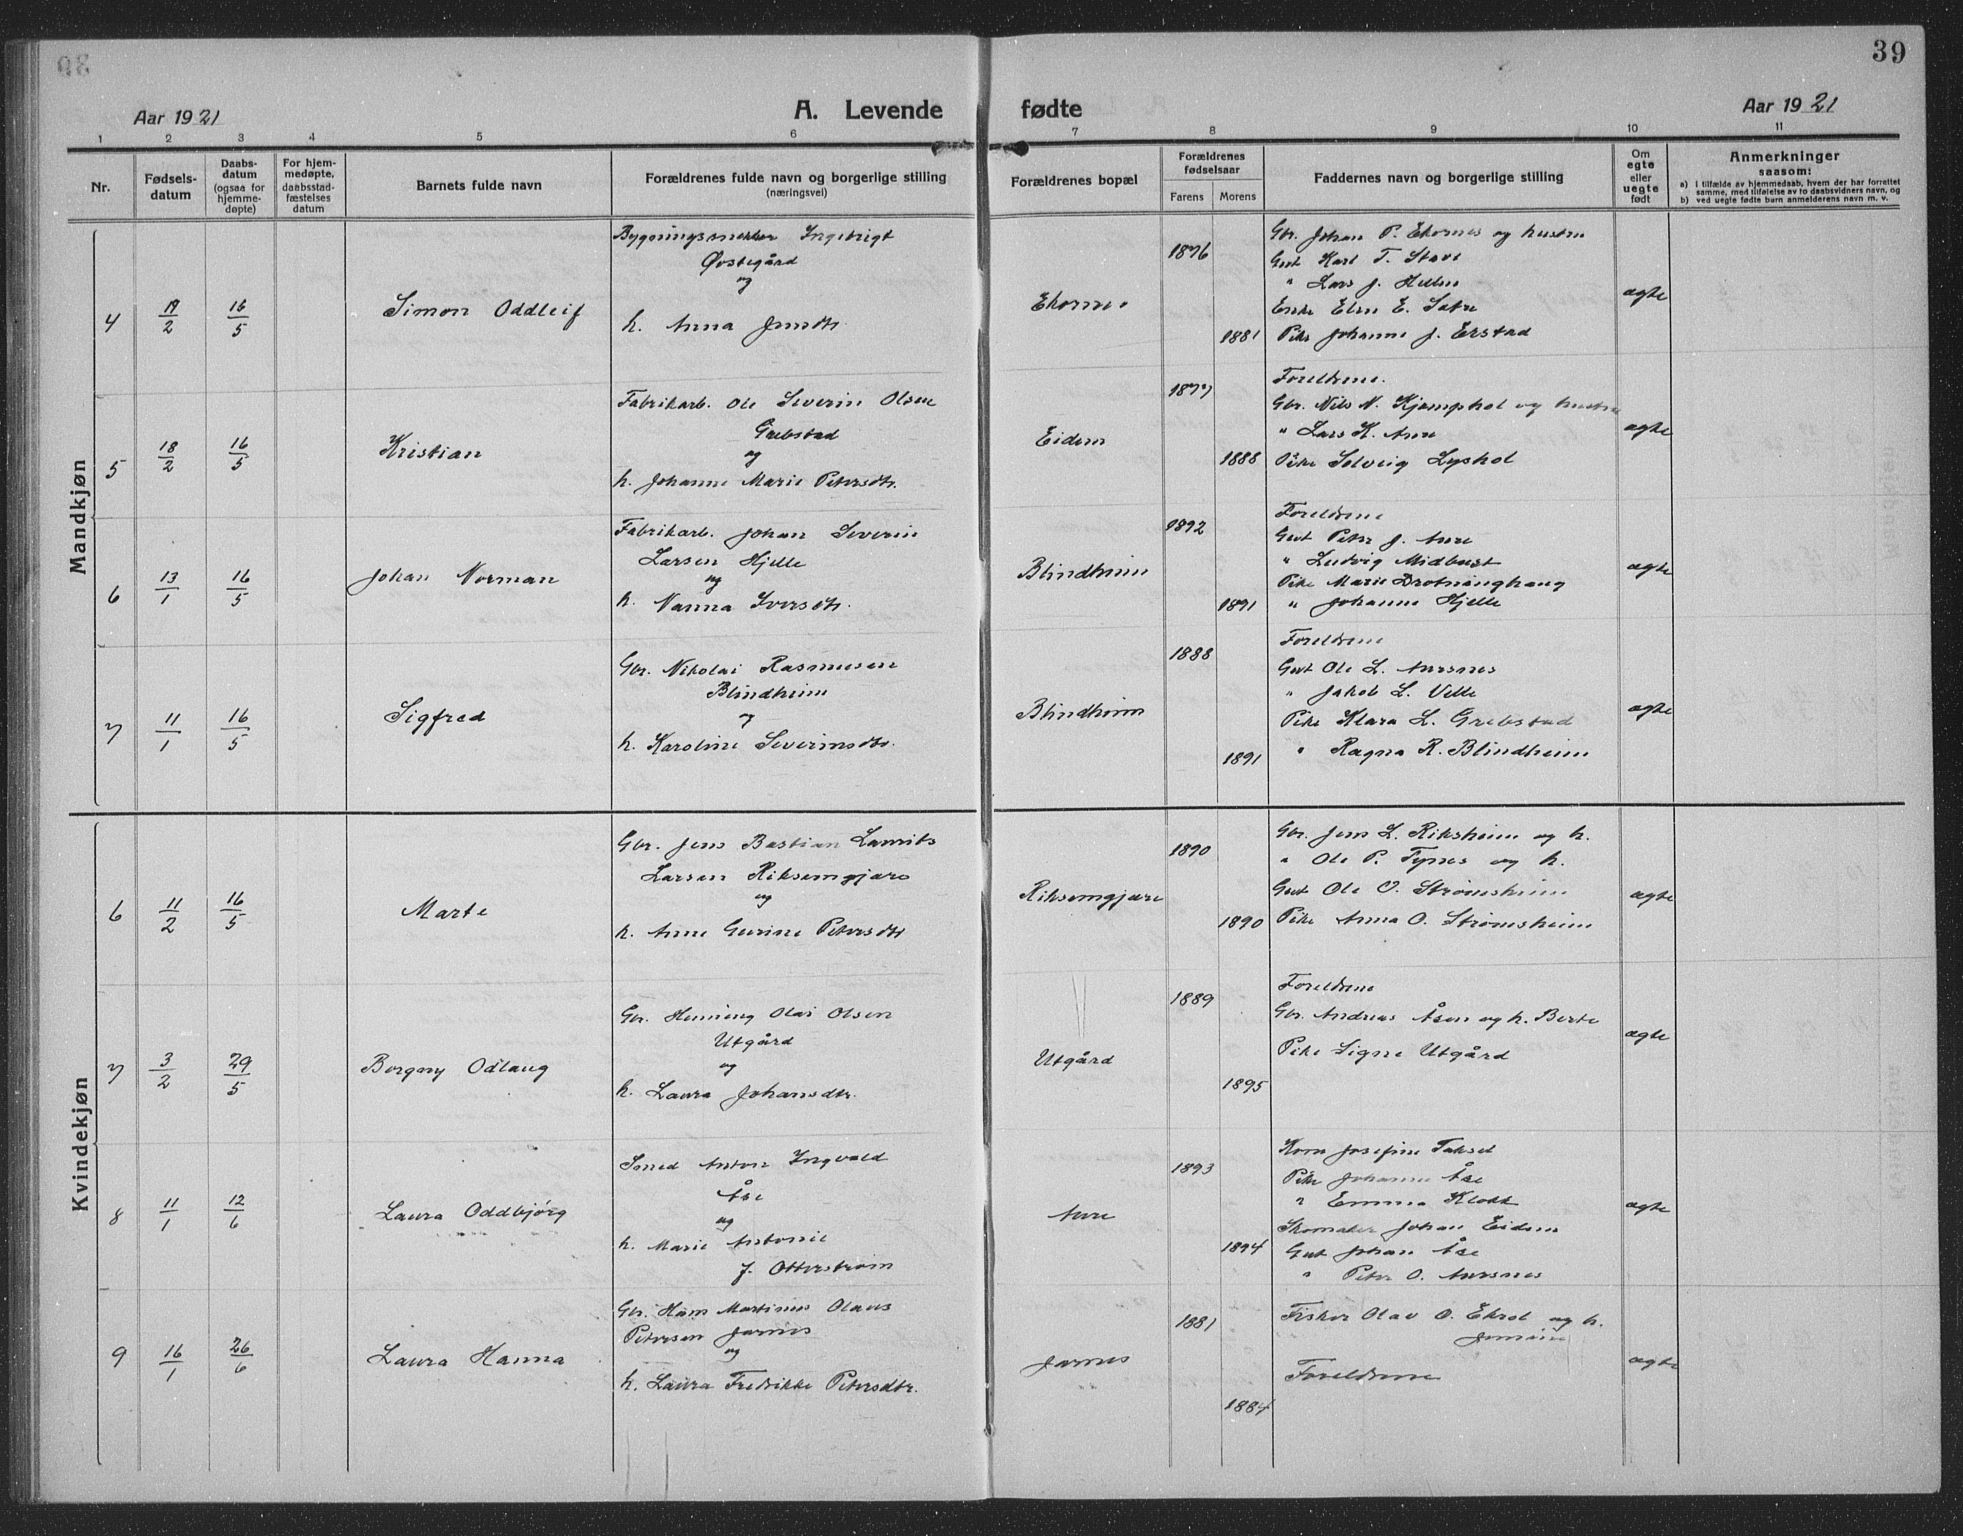 39
Aar 1921
A. Levende fødte
Aar 1921
1 2 3 4 5 6 7 8 9 10 11
Nr.
Fødsels-
datum
Daabs-
datum
(ogsaa for
hjemme-
døpte)
For hjem-
medøpte,
daabsstad-
fæstelses
datum
Barnets fulde navn
Forældrenes fulde navn og borgerlige stilling
(næringsvei)
Forældrenes bopæl
Forældrenes
fødselsaar
Farens Morens
Faddernes navn og borgerlige stilling
Om
egte
eller
uegte
født
Anmerkninger
saasom:
a) i tilfælde av hjemmedaab, hvem der har forrettet
samme, med tilføielse av to daabsvidners navn, og
b) ved uegte fødte barn anmelderens navn m. v.
Mandkjøn
4
19/2
16/5
Simon Oddleif
Bygningssnekker Ingebrigt
Øvstegård
og
h. Anna
Ekornes
1876
1881
Gbr. Johan P. Ekornes og hustru
Gut Karl T. Stavs
" Lars J. Hellen
Enke Elen E. Satre
Pike Johanne J. Erstad
egte
5
18/2
16/5
Kristian
Fabrikarb. Ole Severin Olsen
Grebstad
og
h. Johanne Marie Petersdtr.
Eidem
1877
1888
Foreldrene.
Gbr. Nils N. Kjemphol og hustru
" Lars K. Aure
Pike Solveig Lyshol
egte
6
13/1
16/5
Johan Norman
Fabrikarb. Johan Severin
Larsen Hjelle
og
h. Nanna Iversdtr.
Blindheim
1892
1891
Foreldrene
Gut Peter J. Aure
" Ludvig Midbust
Pike Marie Drotninghaug
" Johanne Hjelle
egte
7
11/1
16/5
Sigfred
Gbr. Nikolai Rasmusen
Blindheim
og
h. Karoline Severinsdtr.
Blindheim
1888
1891
Foreldrene
Gut Ole L. Aursnes
" Jakob L. Velle
Pike Klara L. Grebstad
" Ragna R. Blindheim
egte
Kvindekjøn
6
11/2
16/5
Marte
Gbr. Jens Bastian Laurits
Larsen Riksemgjære
og
h. Anne Gurine Petersdtr
Riksemgjære
1890
1890
Gbr. Jens L. Riksheim og h.
" Ole P. Tynes og h.
Gut Ole O. Strømsheim
Pike Anna O. Strømsheim
egte
7
3/2
29/5
Borgny Odlaug
Gbr. Henning Olai Olsen
Utgård
og
h. Laura Johansdtr.
Utgård
1889
1895
Foreldrene
Gbr. Andreas Åsen og h. Berte
Pike Signe Utgård
egte
8
11/1
12/6
Laura Oddbjørg
Smed Anton Ingvald
Åse
og
h. Marie Antonie
J. Otterstrøm
Aure
1893
1894
Kone Josefine Taksel
Pike Johanne Åse
" Emma Klokk
Skomaker Johan Eidem
Gut Johan Åse
" Peter O. Aursnes
egte
9
16/1
26/6
Laura Hanna
Gbr. Hans Martinus Olaus
Petersen Jarnes
og
h. Laura Fredrikke Petersdtr.
Jarnes
1881
1884
Fisker Olav O. Ekrol og h.
Foreldrene
egte